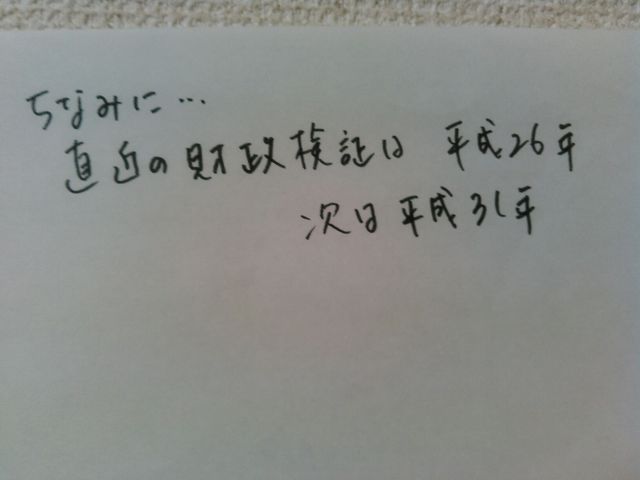 ちなみに…
直近の財政検証は 平成26年
次は平成31年